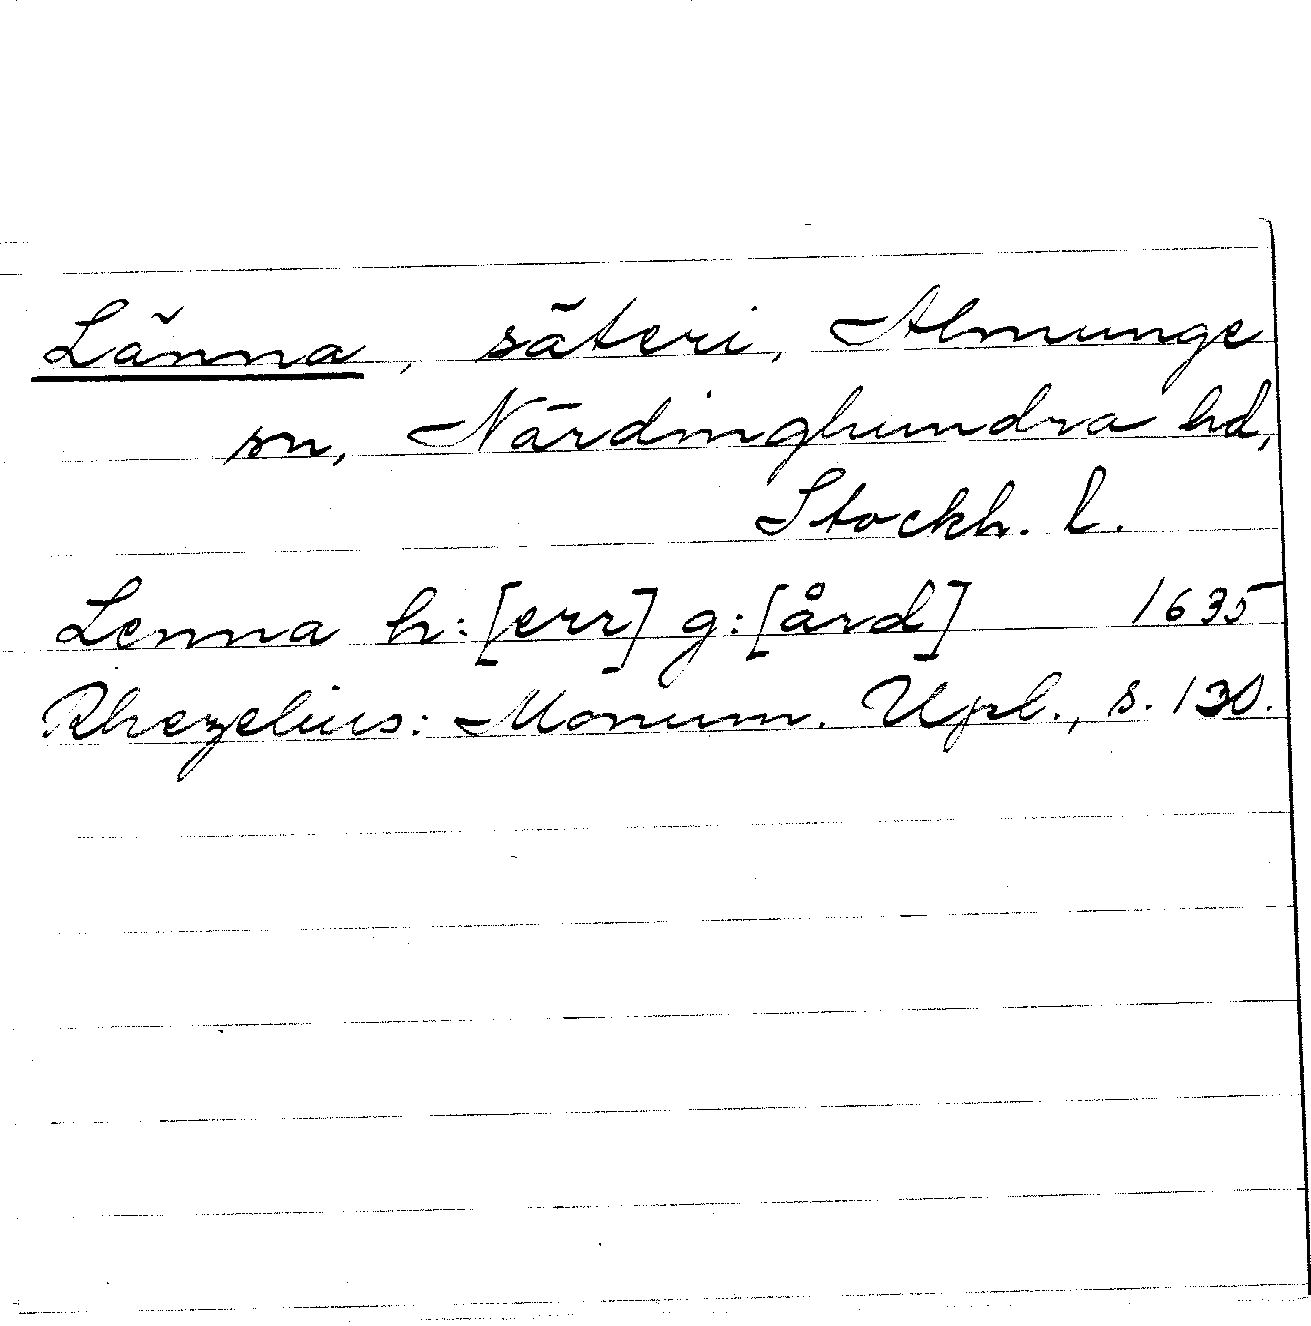 Länna, säteri, Almunge
sn, Närdinghundra hd,
Stockh. l.
Lenna h:[err] g:[ård] 1635
Rhezelius: Monum. Upl., s. 130.